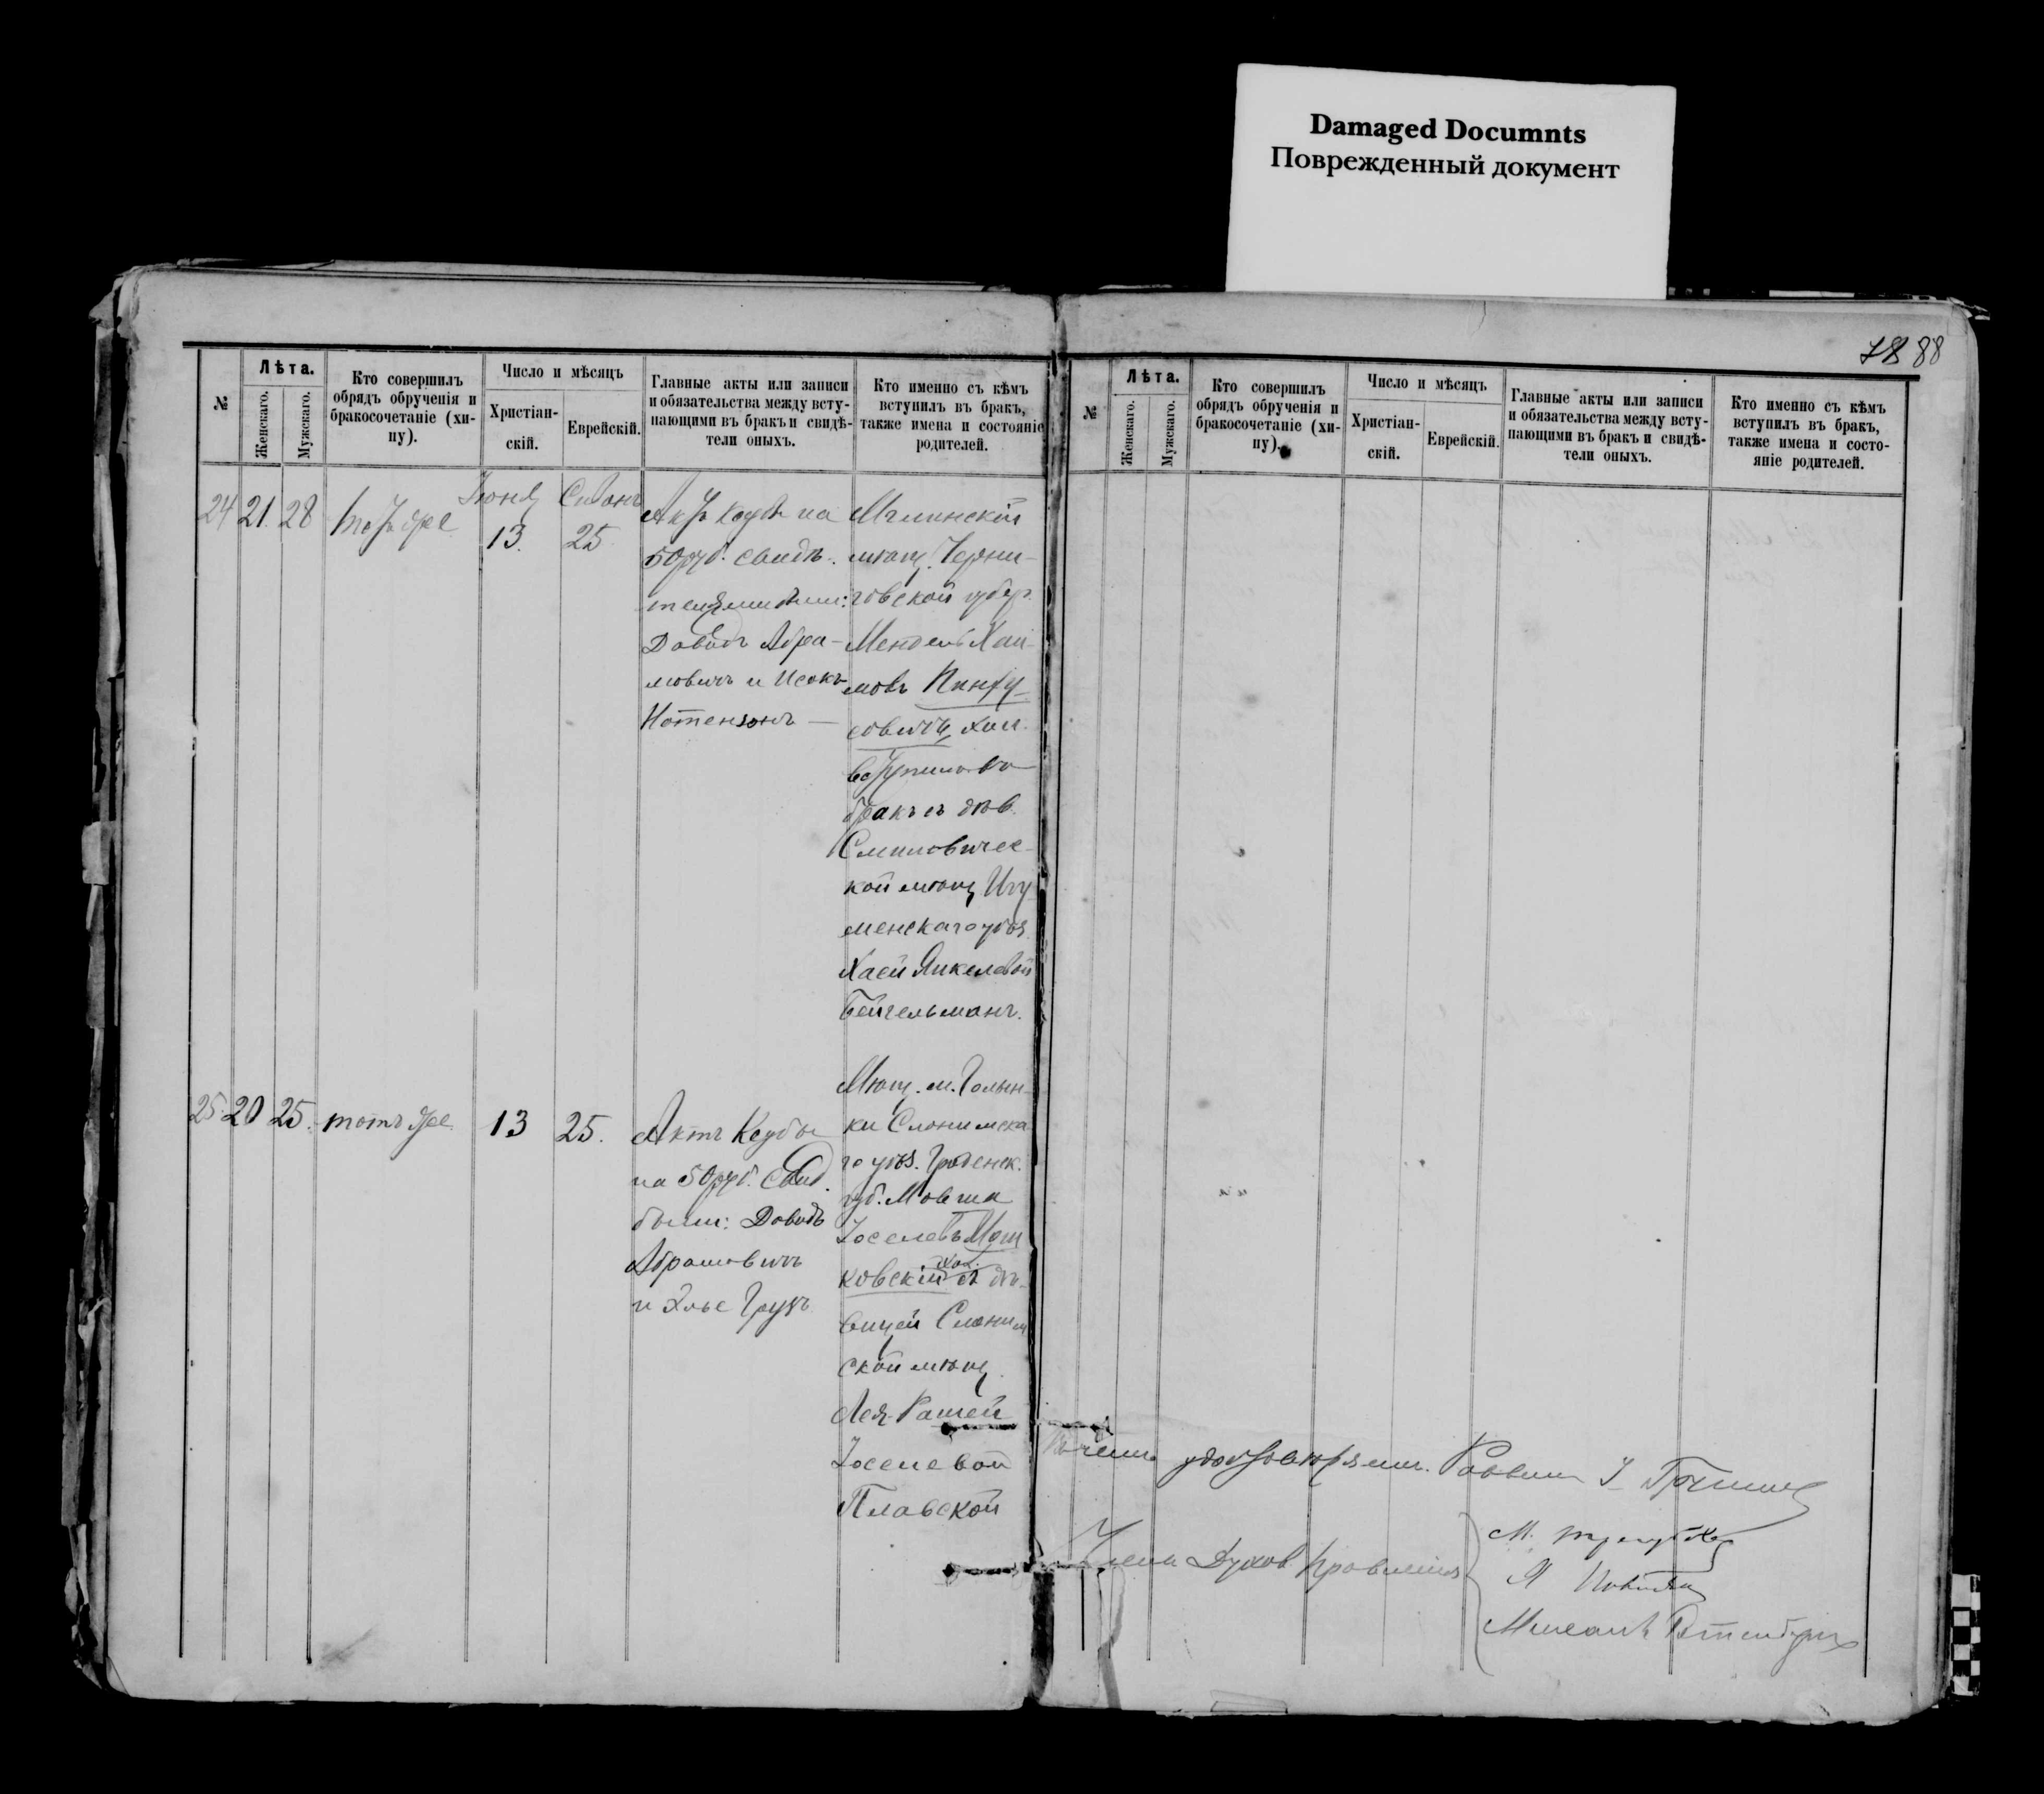 Damaged Documnts
Поврежденный документ
88
№
Лѣта.
Женскаго.
Мужскаго.
Кто совершилъ
обрядъ обрученія и
бракосочетаніе (хи-
пу).
Число и мѣсяцъ
Христіан-
скій.
Еврейскій.
Главные акты или записи
и обязательства между всту-
пающими въ бракъ и свидѣ-
тели оныхъ.
Кто именно съ кѣмъ
вступилъ въ бракъ,
также имена и состояніе
родителей.
24
21.
28
тотъ же
Іюня
13.
Сиванъ
25
Актъ Кеубы на
50 руб. свидѣ-
телями были:
Довидъ Абра-
мовичъ и Исокъ
Нотензонъ —
Мглинскій
мѣщ. Черни-
говской губер.
Мендель Хаи-
мовъ Пинху-
совичъ, хол.
вступилъ во
бракъ съ дѣв.
Смиловичес-
кой мѣщ. Игу-
менскаго уѣз.
Хаей Янкелевой
Бейгельманъ.
25.
20
25.
тотъ же
13
25.
Актъ Кеубы
на 50 руб. Свид.
были: Довидъ
Абрамовичъ
и Элье Грузъ
Мѣщ. м. Голын-
ки Слонимска-
го уѣз. Гроденск.
губ. Мовша
Іоселевъ Мош-
ковскій хол. съ дѣ-
вицей Слоним-
ской мѣщ.
Лея-Рашей
Іоселевой
Плавской
№
Лѣта.
Женскаго.
Мужскаго.
Кто совершилъ
обрядъ обрученія и
бракосочетаніе (хи-
пу).
Число и мѣсяцъ
Христіан-
скій.
Еврейскій.
Главные акты или записи
и обязательства между всту-
пающими въ бракъ и свидѣ-
тели оныхъ.
Кто именно съ кѣмъ
вступилъ въ бракъ,
также имена и состо-
яніе родителей.
удостовѣряемъ. Раввинъ
Члены Духов. Правленія
М.